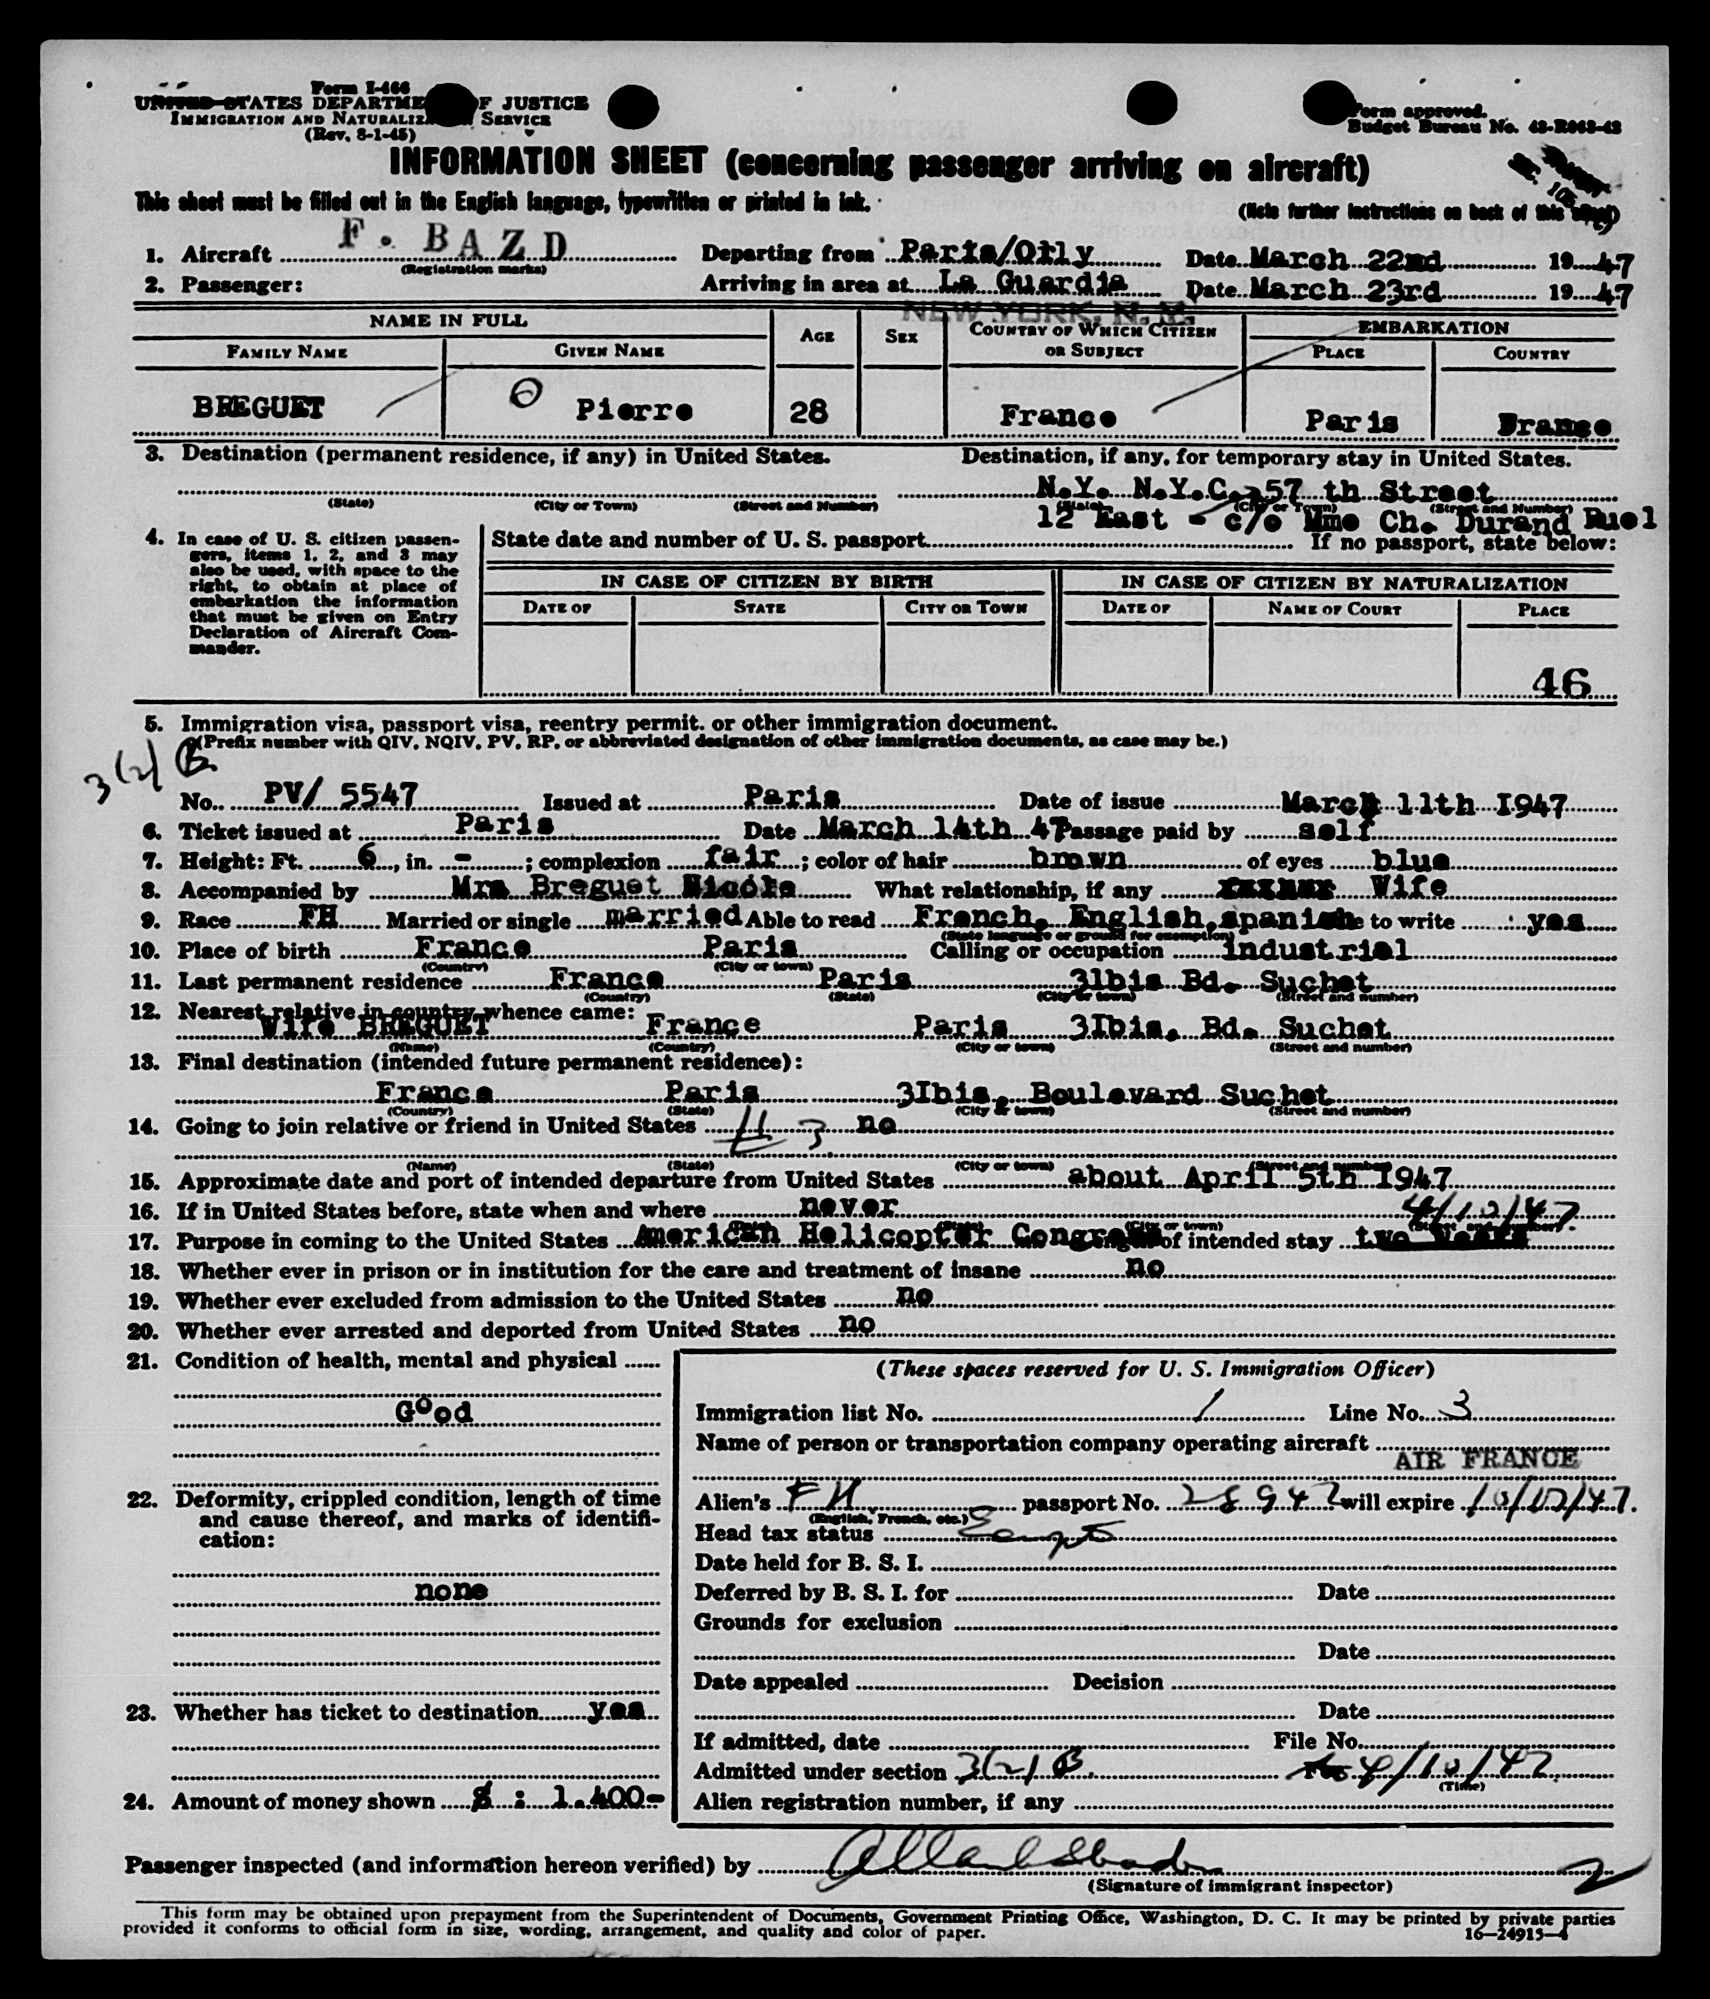 Form I-466
UNITED STATES DEPARTMENT OF JUSTICE
IMMIGRATION AND NATURALIZATION SERVICE
(Rev. 8-1-45)
Form approved.
Budget Bureau No. 43-R063-42
INFORMATION SHEET (concerning passenger arriving on aircraft)
This sheet must be filled out in the English language, typewritten or printed in ink.
(Note further instructions on back of this sheet)
1. Aircraft F. BAZD Departing from Paris/Orly Date March 22nd 1947
(Registration marks)
2. Passenger: Arriving in area at La Guardia Date March 23rd 1947
NEW YORK, N. Y.
NAME IN FULL AGE SEX COUNTRY OF WHICH CITIZEN OR SUBJECT EMBARKATION
FAMILY NAME GIVEN NAME PLACE COUNTRY
BREGUET Pierre 28 France Paris France
3. Destination (permanent residence, if any) in United States. Destination, if any, for temporary stay in United States.
N.Y. N.Y.C. 57 th Street
(State) (City or Town) (Street and Number) (State) (City or Town) (Street and Number)
12 East - c/o Mme Ch. Durand Ruel
4. In case of U. S. citizen passengers, items 1, 2, and 3 may also be used, with space to the right, to obtain at place of embarkation the information that must be given on Entry Declaration of Aircraft Commander.
State date and number of U. S. passport If no passport, state below:
IN CASE OF CITIZEN BY BIRTH IN CASE OF CITIZEN BY NATURALIZATION
DATE OF STATE CITY OR TOWN DATE OF NAME OF COURT PLACE
46
5. Immigration visa, passport visa, reentry permit, or other immigration document.
(Prefix number with QIV, NQIV, PV, RP, or abbreviated designation of other immigration documents, as case may be.)
3(2) B
No. PV/ 5547 Issued at Paris Date of issue March 11th I947
6. Ticket issued at Paris Date March 14th 47 Passage paid by self
7. Height: Ft. 6, in. -; complexion fair; color of hair brown of eyes blue
8. Accompanied by Mrs Breguet Nicole What relationship, if any Wife
9. Race FH Married or single married Able to read French, English, spanish to write yes
(State language or ground for exemption)
10. Place of birth France Paris Calling or occupation industrial
(Country) (City or town)
11. Last permanent residence France Paris 3lbis Bd. Suchet
(Country) (State) (City or town) (Street and number)
12. Nearest relative in country whence came:
Wife BREGUET France Paris 3Ibis, Bd. Suchet
(Name) (Country) (City or town) (Street and number)
13. Final destination (intended future permanent residence):
France Paris 3Ibis, Boulevard Suchet
(Country) (State) (City or town) (Street and number)
14. Going to join relative or friend in United States no
(Name) (State) (City or town) (Street and number)
15. Approximate date and port of intended departure from United States about April 5th I947
16. If in United States before, state when and where never 4/10/47.
(City or town) (Street and number)
17. Purpose in coming to the United States American Helicopter Congress of intended stay two weeks
18. Whether ever in prison or in institution for the care and treatment of insane no
19. Whether ever excluded from admission to the United States no
20. Whether ever arrested and deported from United States no
21. Condition of health, mental and physical
Good
22. Deformity, crippled condition, length of time and cause thereof, and marks of identification:
none
23. Whether has ticket to destination yes
24. Amount of money shown $ : 1.400-
(These spaces reserved for U. S. Immigration Officer)
Immigration list No. 1 Line No. 3
Name of person or transportation company operating aircraft
AIR FRANCE
Alien's FH. passport No. 28947 will expire 10/12/47.
(English, French, etc.)
Head tax status
Date held for B. S. I.
Deferred by B. S. I. for Date
Grounds for exclusion
Date
Date appealed Decision
Date
If admitted, date File No.
Admitted under section 3(2) B. 4/10/47
(Time)
Alien registration number, if any
Passenger inspected (and information hereon verified) by
2
(Signature of immigrant inspector)
This form may be obtained upon prepayment from the Superintendent of Documents, Government Printing Office, Washington, D. C. It may be printed by private parties
provided it conforms to official form in size, wording, arrangement, and quality and color of paper.
16—24915-4